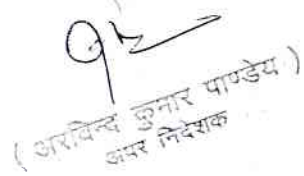 ( अरविन्द कुमार पाण्डेय )
अपर निदेशक